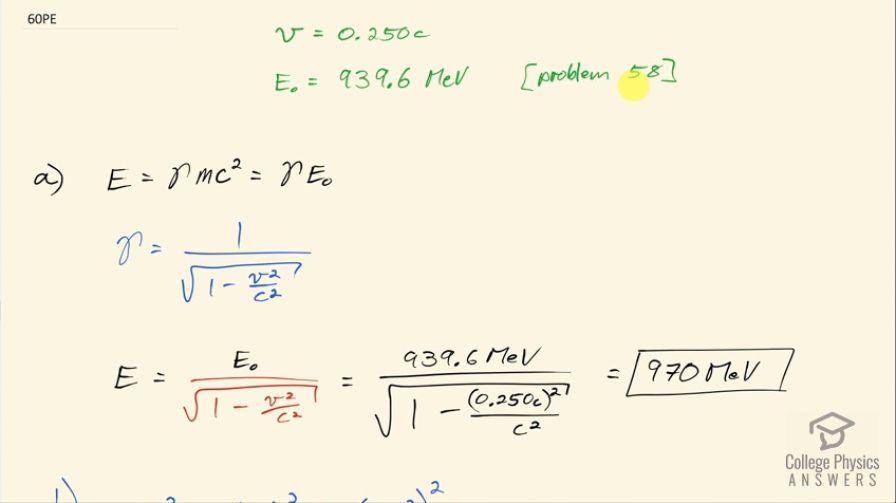 60PE
v = 0.250c
E₀ = 939.6 MeV [problem 58]
a) E = γmc² = γE₀
γ = 1 / √(1 - v²/c²)
E = E₀ / √(1 - v²/c²) = 939.6 MeV / √(1 - (0.250c)²/c²) = 970 MeV
College Physics
ANSWERS